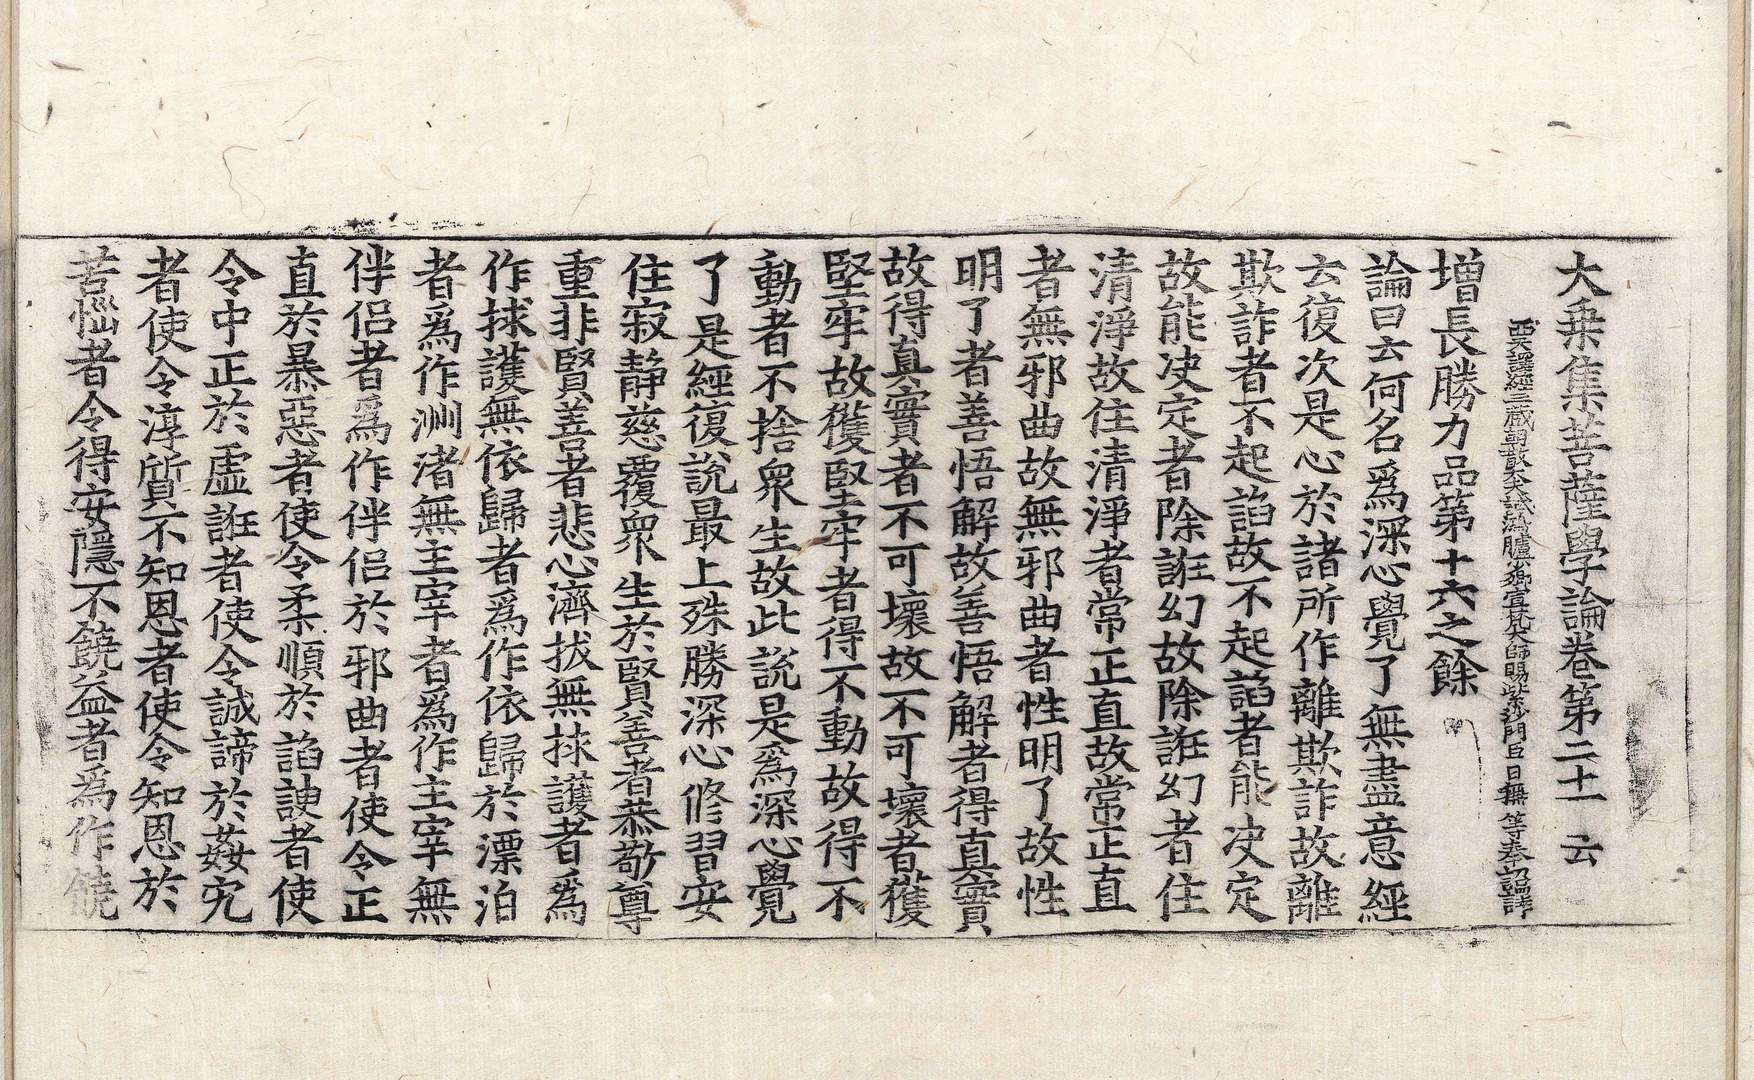 大乗集菩薩學論卷第二十一 云
西天譯經三藏朝散大夫試鴻臚少卿宣梵大師賜紫沙門臣日稱等奉詔譯
增長勝力品第十六之餘
論曰云何名爲深心覺了無盡意經
云復次是心於諸所作離欺詐故離
欺詐者不起諂故不起諂者能決定
故能決定者除誑幻故除誑幻者住
清淨故住清淨者常正直故常正直
者無邪曲故無邪曲者性明了故性
明了者善悟解故善悟解者得真實
故得真實者不可壞故不可壞者獲
堅牢故獲堅牢者得不動故得不
動者不捨衆生故此說是爲深心覺
了是經復說最上殊勝深心修習安
住寂静慈覆衆生於賢善者恭敬尊
重非賢善者悲心濟拔無捄護者爲
作捄護無依歸者爲作依歸於漂泊
者爲作洲渚無主宰者爲作主宰無
伴侣者爲作伴侣於邪曲者使令正
直於暴惡者使令柔順於諂諛者使
令中正於虛誑者使令誠諦於姦宄
者使令淳質不知恩者使令知恩於
苦惱者令得安隱不饒益者爲作饒